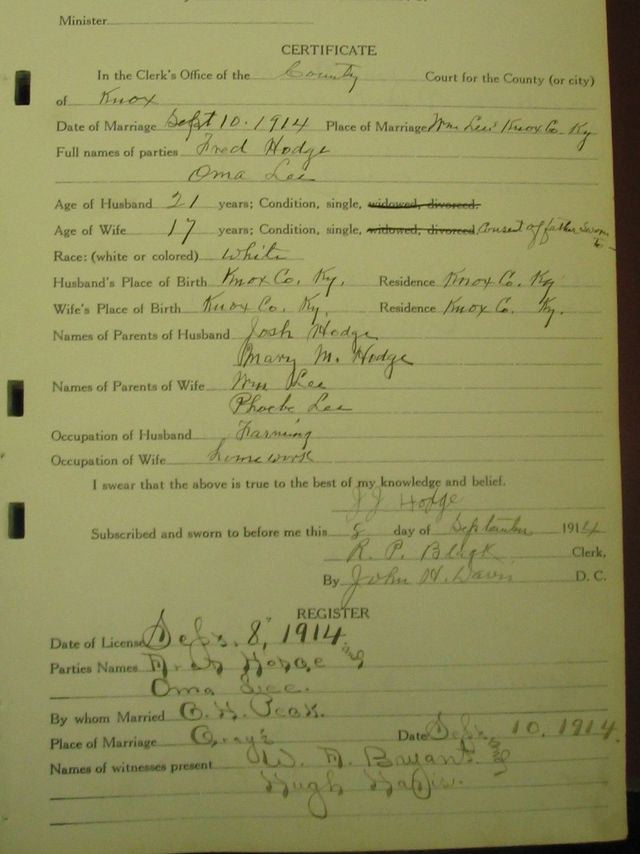 Minister
CERTIFICATE
In the Clerk's Office of the County Court for the County (or city)
of Knox
Date of Marriage Sept 10. 1914 Place of Marriage Wm Lees Knox Co. Ky
Full names of parties Fred Hodge
Oma Lee
Age of Husband 21 years; Condition, single, widowed, divorced.
Age of Wife 17 years; Condition, single, widowed, divorced consent of father sworn to
Race: (white or colored) White
Husband's Place of Birth Knox Co. Ky. Residence Knox Co. Ky
Wife's Place of Birth Knox Co. Ky. Residence Knox Co. Ky.
Names of Parents of Husband Josh Hodge
Mary M. Hodge
Names of Parents of Wife Wm Lee
Phoebe Lee
Occupation of Husband Farming
Occupation of Wife homework
I swear that the above is true to the best of my knowledge and belief.
J J Hodge
Subscribed and sworn to before me this 8 day of September 1914
R. P. Black Clerk,
By John H. Davis D. C.
REGISTER
Date of License Sept. 8, 1914.
Parties Names Hodge and
Oma Lee.
By whom Married
Place of Marriage Grays Date Sept. 10, 1914.
Names of witnesses present W. A. Bryant and
Hugh